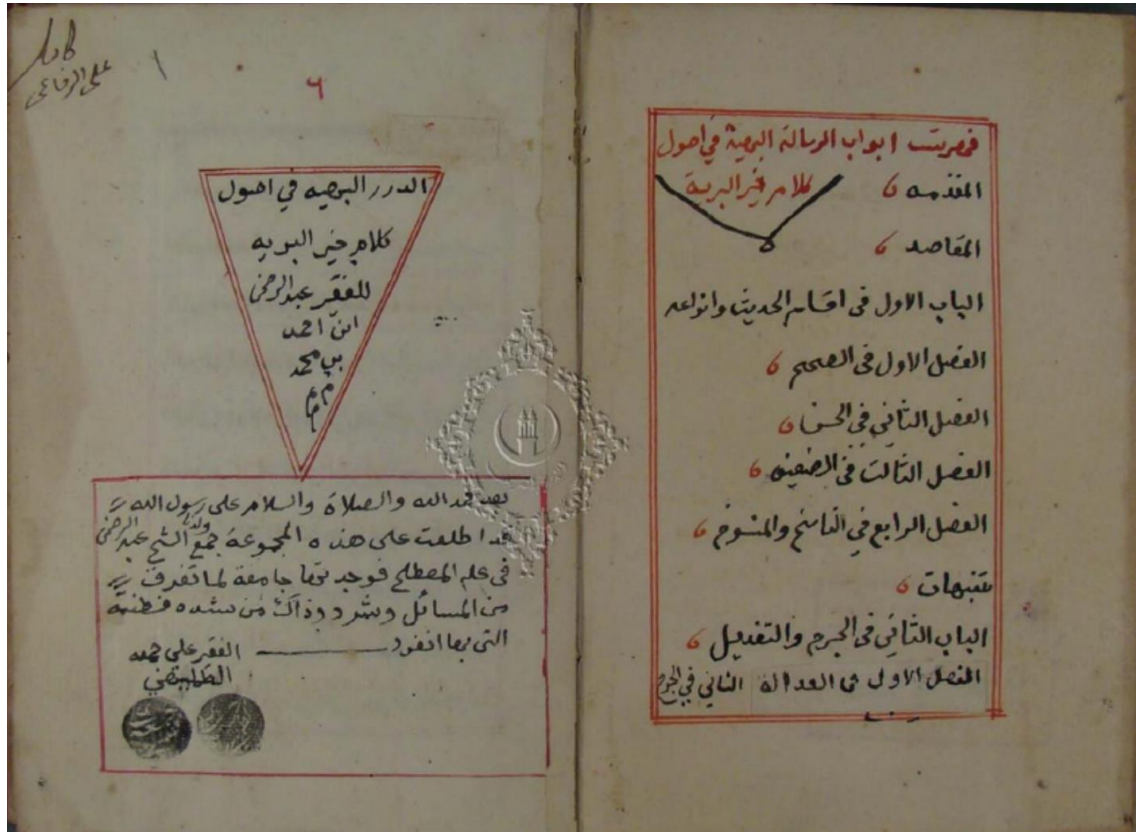 فهرست ابواب الرسالة البهية في اصول
كلام خير البرية
المقدمه
المقاصد
الباب الاول في اقسام الحديث وانواعه
الفصل الاول في الصحيح
الفصل الثاني في الحسن
الفصل الثالث في الضعيف
الفصل الرابع في الناسخ والمنسوخ
تنبيهات
الباب الثاني في الجرح والتعديل
الفصل الاول في العدالة الثاني في الجرح
كامل
علي الرفاعي
١
٦
الدرر البهيه في اصول
كلام خير البريه
للفقير عبد الرحمن
ابن احمد
بن محمد
بعد حمد الله والصلاة والسلام على رسول الله
قد اطلعت على هذه المجموعة جمع ولدنا الشيخ عبد الرحمن
في علم المصطلح فوجدتها جامعة لما تفرق
من المسائل وشرد وذاك من شدة فطنته
التي بها انفرد
الفقير علي